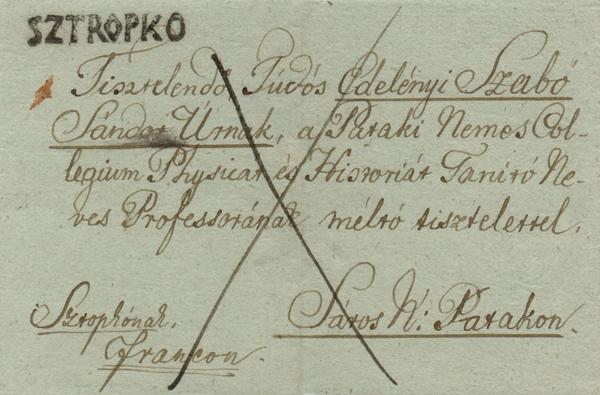 SZTROPKO
Tisztelendő, Túdós Edelényi Szabó
Sándor Úrnak, a Pataki Nemes Col-
legium Physicat és Historiát Tanító Ne-
ves Professorának méltó tisztelettel.
Sztropkónak. Sáros N: Patakon.
Francon.